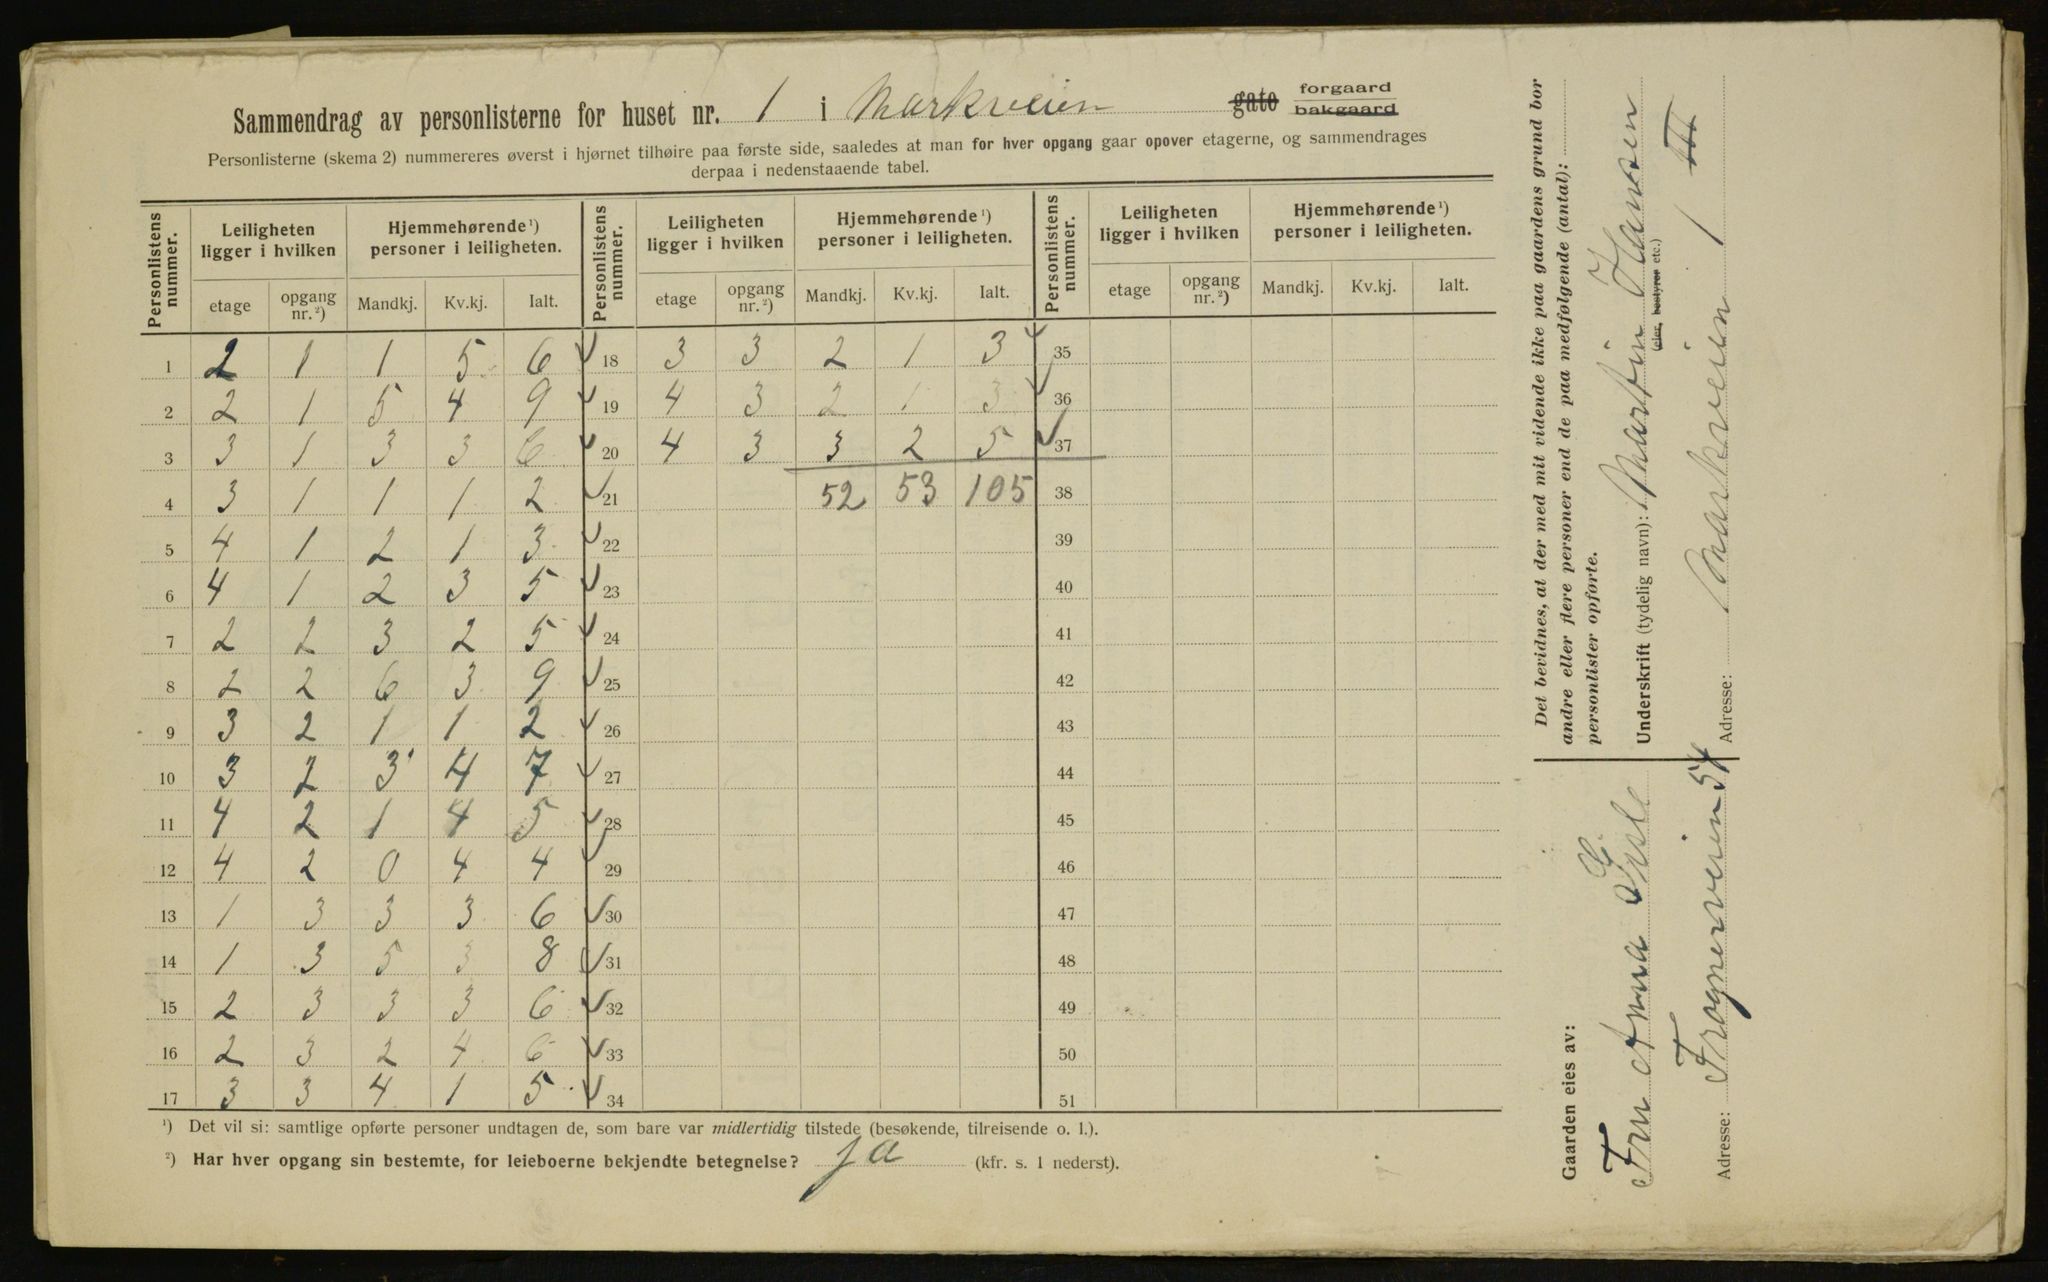 Sammendrag av personlisterne for huset nr. 1 i Markveien gate forgaard bakgaard
Personlisterne (skema 2) nummereres øverst i hjørnet tilhøire paa første side, saaledes at man for hver opgang gaar opover etagerne, og sammendrages
derpaa i nedenstaaende tabel.
Personlistens nummer. Leiligheten ligger i hvilken Hjemmehørende ¹) personer i leiligheten. Personlistens nummer. Leiligheten ligger i hvilken Hjemmehørende ¹) personer i leiligheten. Personlistens nummer. Leiligheten ligger i hvilken Hjemmehørende ¹) personer i leiligheten.
etage opgang nr. ²) Mandkj. Kv.kj. Ialt. etage opgang nr. ²) Mandkj. Kv.kj. Ialt. etage opgang nr. ²) Mandkj. Kv.kj. Ialt.
1 2 1 1 5 6 18 3 3 2 1 3 35
2 2 1 5 4 9 19 4 3 2 1 3 36
3 3 1 3 3 6 20 4 3 3 2 5 37
4 3 1 1 1 2 21 52 53 105 38
5 4 1 2 1 3 22 39
6 4 1 2 3 5 23 40
7 2 2 3 2 5 24 41
8 2 2 6 3 9 25 42
9 3 2 1 1 2 26 43
10 3 2 3 4 7 27 44
11 4 2 1 4 5 28 45
12 4 2 0 4 4 29 46
13 1 3 3 3 6 30 47
14 1 3 5 3 8 31 48
15 2 3 3 3 6 32 49
16 2 3 2 4 6 33 50
17 3 3 4 1 5 34 51
¹) Det vil si: samtlige opførte personer undtagen de, som bare var midlertidig tilstede (besøkende, tilreisende o. l.).
²) Har hver opgang sin bestemte, for leieboerne bekjendte betegnelse? ja (kfr. s. 1 nederst).
Det bevidnes, at der med mit vidende ikke paa gaardens grund bor
andre eller flere personer end de paa medfølgende (antal):
personlister opførte.
Underskrift (tydelig navn): Martin Hansen
(eier, bestyrer etc.)
Adresse: Markveien 1 III
Gaarden eies av:
Fru Anna
Adresse: Frognerveien 54